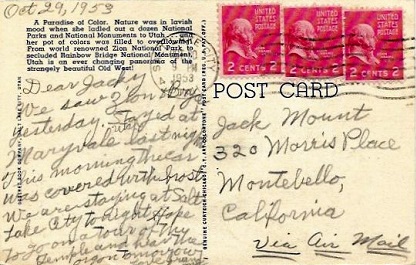 Oct 29, 1953
A Paradise of Color. Nature was in lavish
mood when she ladled out a dozen National
Parks and National Monuments to Utah —
her pot of colors was filled to overflowing.
From world renowned Zion National Park to
secluded Rainbow Bridge National Monument,
Utah is an ever changing panorama of the
strangely beautiful Old West!
UNITED STATES POSTAGE
2 CENTS 2
UNITED STATES POSTAGE
2 CENTS 2
UNITED STATES POSTAGE
2 CENTS 2
1953
POST CARD
Dear Jacky
We saw Zion
yesterday. Stayed at
Marysvale last night
This morning the car
was covered with frost
We are staying at Salt
Lake City tonight. Hope
to go on a tour of the
Temple and hear the
organ tomorrow
Love
Jack Mount
320 Morris Place
Montebello,
California
Via Air Mail